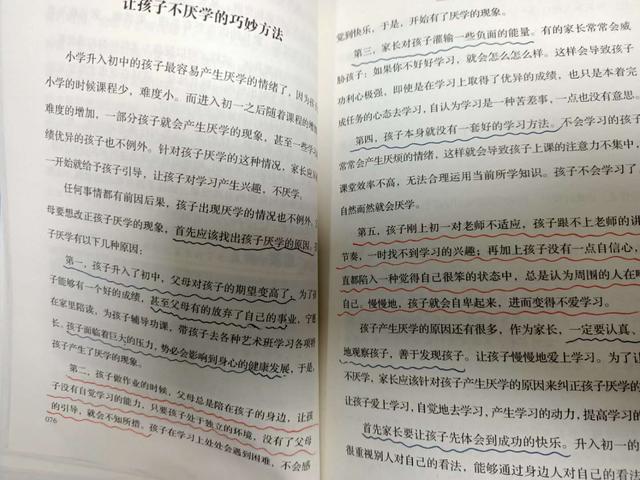 让孩子不厌学的巧妙方法
小学升入初中的孩子最容易产生厌学的情绪了，因为
小学的时候课程少，难度小。而进入初一之后随着课程的增
难度的增加，一部分孩子就会产生厌学的现象，甚至一些学
绩优异的孩子也不例外。针对孩子厌学的这种情况，家长应
一开始就给予孩子引导，让孩子对学习产生兴趣，不厌学。
任何事情都有前因后果，孩子出现厌学的情况也不例外。
母要想改正孩子厌学的现象，首先应该找出孩子厌学的原因。
子厌学有以下几种原因：
第一，孩子升入了初中，父母对孩子的期望变高了，为了
子能够有一个好的成绩，甚至父母有的放弃了自己的事业，宁
在家里陪读，为孩子辅导功课，带孩子去各种艺术班学习各项
长，孩子面临着巨大的压力，势必会影响到身心的健康发展，于是，
孩子产生了厌学的现象。
第二，孩子做作业的时候，父母总是陪在孩子的身边，让孩
子没有自觉学习的能力，只要孩子处于独立的环境，没有了父母
的引导，就会不知所措。孩子在学习上处处会遇到困难，不会感
076
觉到快乐，于是，开始有了厌学的现象。
第三，家长对孩子灌输一些负面的能量。有的家长常常会威
胁孩子：如果你不好好学习，就会怎么怎么样。这样会导致孩子
功利心极强，即使是在学习上取得了优异的成绩，也只是本着完
成任务的心态去学习，自认为学习是一种苦差事，一点也没有意思。
第四，孩子本身就没有一套好的学习方法。不会学习的孩子
常常会产生厌烦的情绪，这样就会导致孩子上课的注意力不集中，
课堂效率不高，无法合理运用当前所学知识。孩子不会学习了，
自然而然就会厌学。
第五，孩子刚上初一对老师不适应，孩子跟不上老师的讲
节奏，一时找不到学习的兴趣；再加上孩子没有一点自信心，
直都陷入一种觉得自己很笨的状态中，总是认为周围的人在
自己。慢慢地，孩子就会自卑起来，进而变得不爱学习。
孩子产生厌学的原因还有很多，作为家长，一定要认真、
地观察孩子，善于发现孩子。让孩子慢慢地爱上学习。为了让
不厌学，家长应该针对孩子产生厌学的原因来纠正孩子厌学的
让孩子爱上学习，自觉地去学习，产生学习的动力，提高学习的
首先家长要让孩子先体会到成功的快乐。升入初一的
很重视别人对自己的看法，能够通过身边人对自己的看